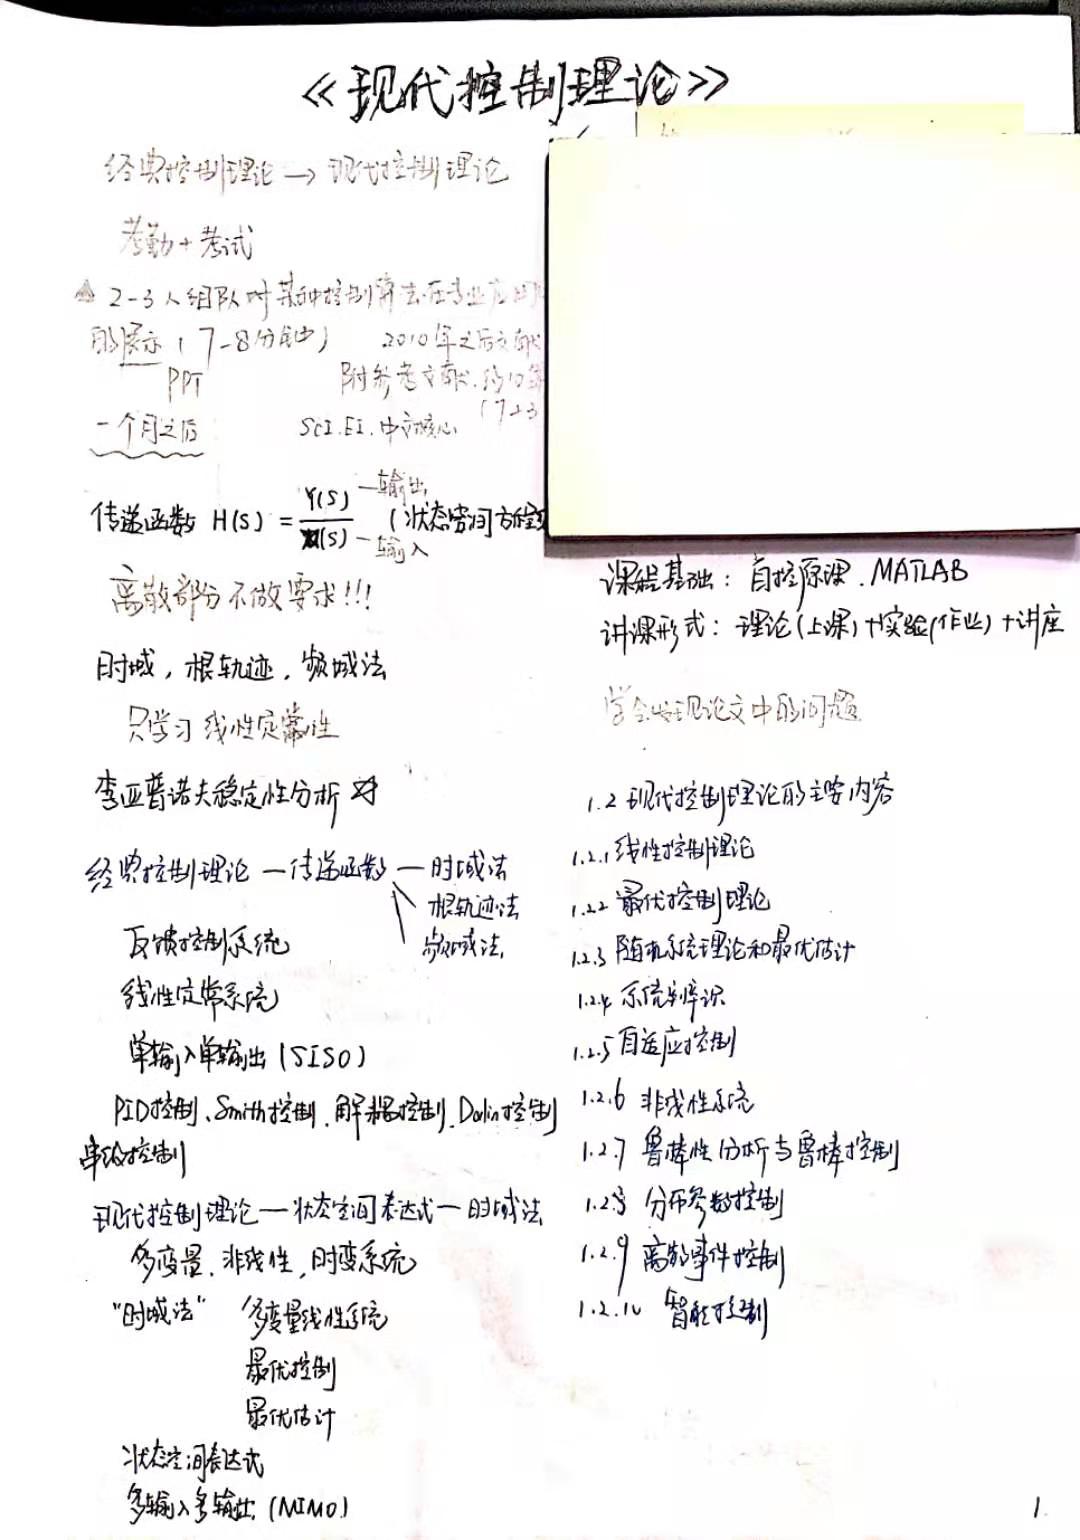 《现代控制理论》
经典控制理论→现代控制理论
考勤+考试
2-3人组队对某种控制算法在专业应用
的展示(7-8分钟) 2010年之后文献
PPT 附参考文献.约10篇
(7+3
一个月之后 SCI.EI.中文核心
传递函数 H(S) = Y(S)/X(S) —输出 —输入 (状态空间方程
离散部分不做要求!!!
时域,根轨迹,频域法
只学习线性定常性
李亚普诺夫稳定性分析
经典控制理论—传递函数—时域法
根轨迹法
频域法
反馈控制系统
线性定常系统
单输入单输出(SISO)
PID控制、Smith控制、解耦控制、Dalin控制
串级控制
现代控制理论—状态空间表达式—时域法
多变量、非线性,时变系统
"时域法" 多变量线性系统
最优控制
最优估计
状态空间表达式
多输入多输出(MIMO)
课程基础:自控原理.MATLAB
讲课形式:理论(上课)+实验(作业)+讲座
学会发现论文中的问题
1.2 现代控制理论的主要内容
1.2.1 线性控制理论
1.2.2 最优控制理论
1.2.3 随机系统理论和最优估计
1.2.4 系统辨识
1.2.5 自适应控制
1.2.6 非线性系统
1.2.7 鲁棒性分析与鲁棒控制
1.2.8 分布参数控制
1.2.9 离散事件控制
1.2.10 智能控制
1.